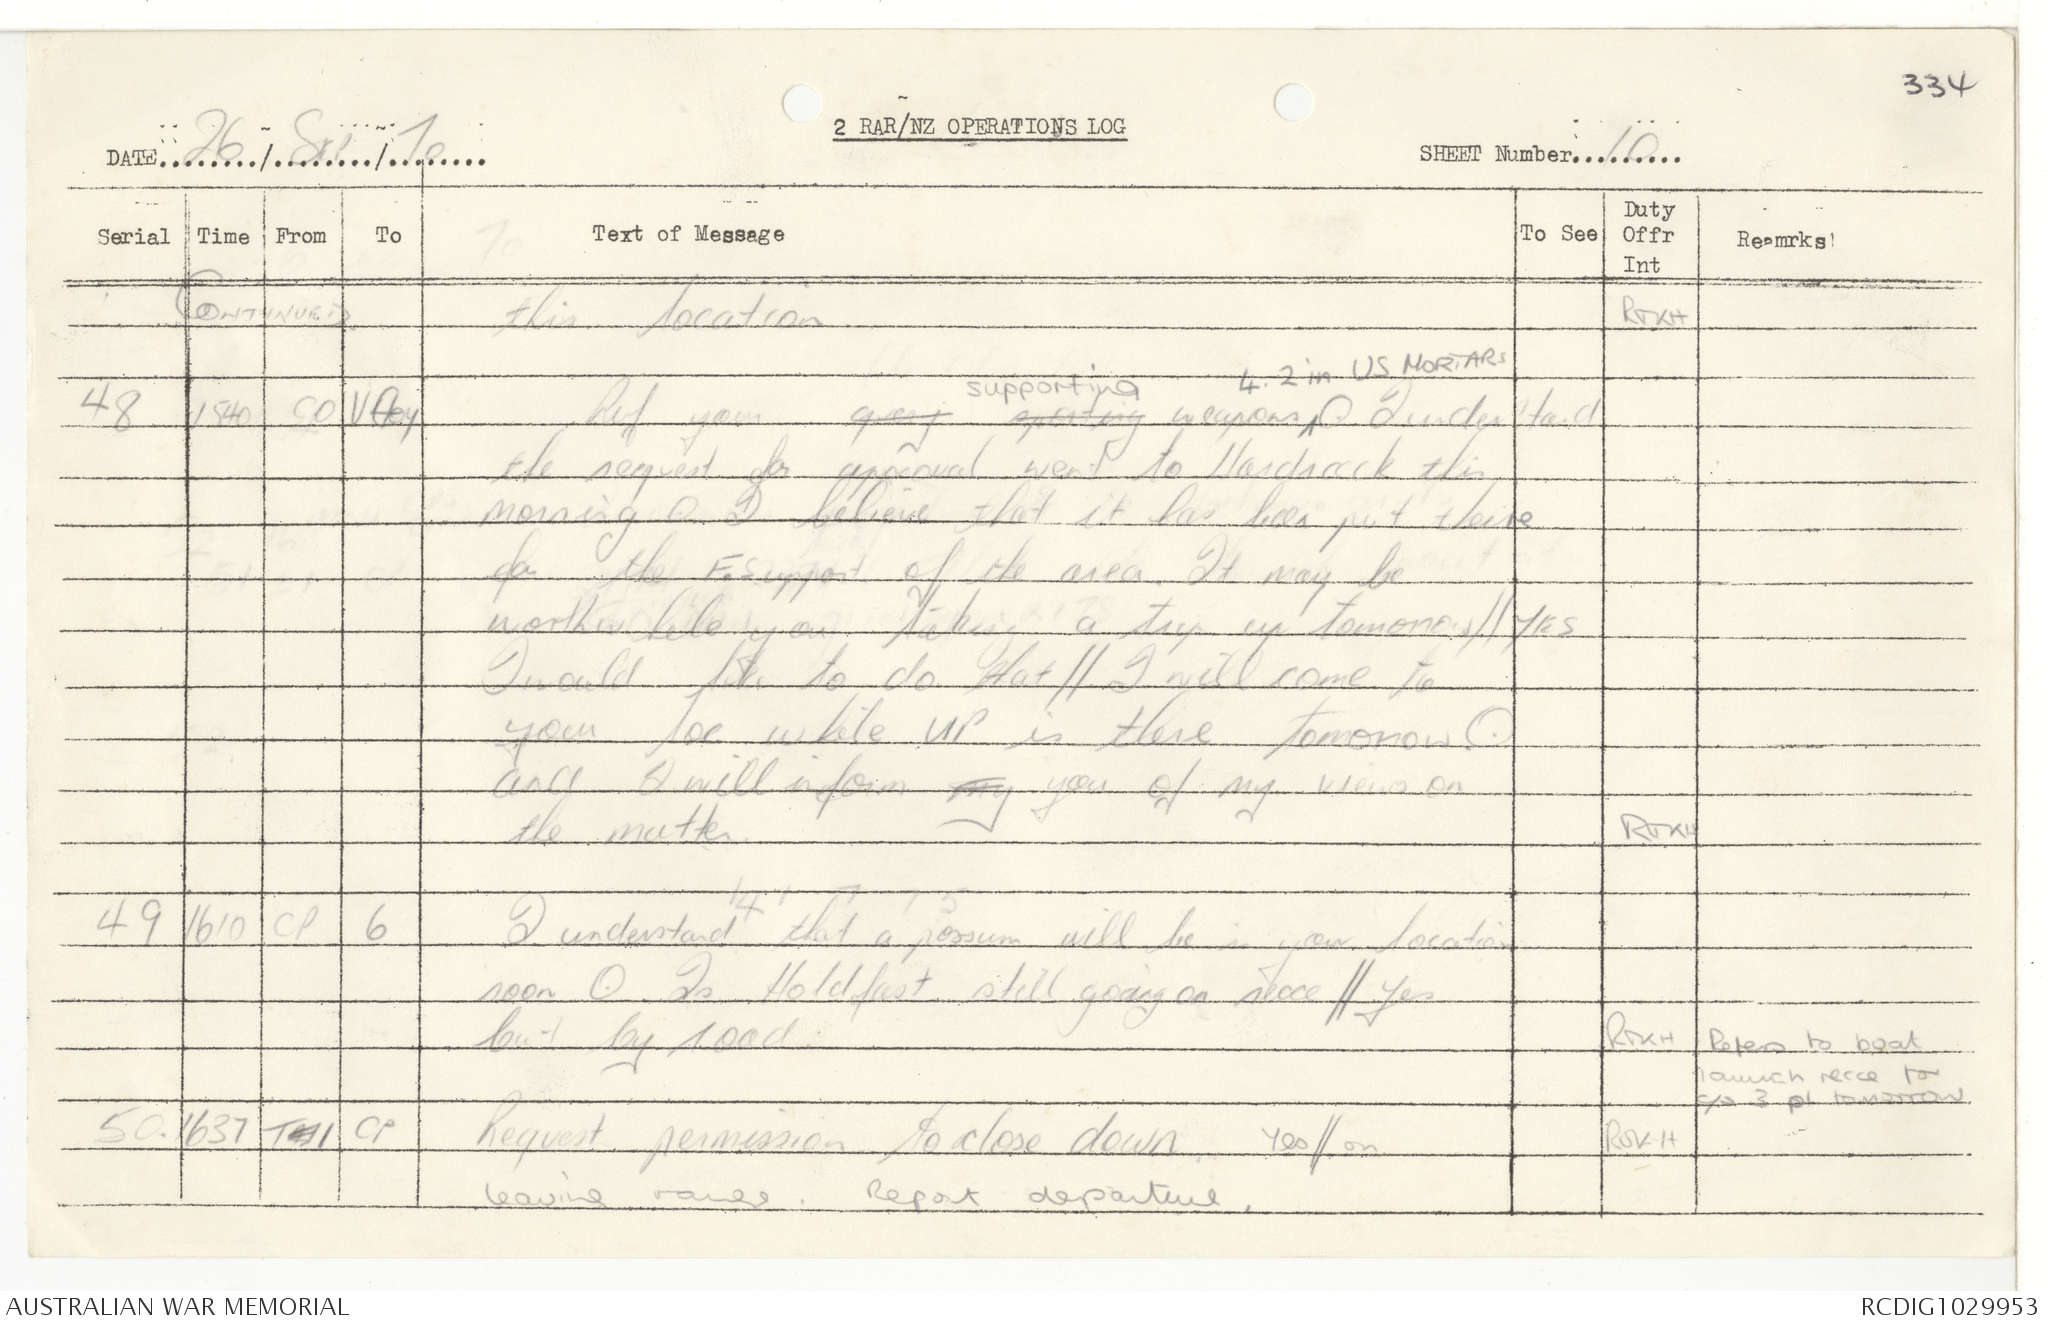 334
2 RAR/NZ OPERATIONS LOG
DATE 26 / Sep / 70
SHEET Number 10
Serial Time From To Text of Message To See Duty Offr Int Reamrks
CONTINUED this location. RJKH
supporting 4.2 in US MORTARS
48 1540 CO V Coy Ref your query sporting weapons O I understand
the request for approval went to Hardrock this
morning O I believe that it has been put there
for the F. Support of the area. It may be
worthwhile you taking a trip up tomorrow // YES
I would like to do that // I will come to
your loc while VIP is there tomorrow O
and I will inform my you of my views on
the matter. RJKH
49 1610 CP 6 I understand that a possum will be in your location
soon O Is Holdfast still going on recce // Yes
but by road. RJKH Refers to boat
launch recce to
c/s 3 pl tomorrow.
50. 1637 CP Request permission to close down. Yes // on RJKH
leaving range. Report departure.
AUSTRALIAN WAR MEMORIAL
RCDIG1029953